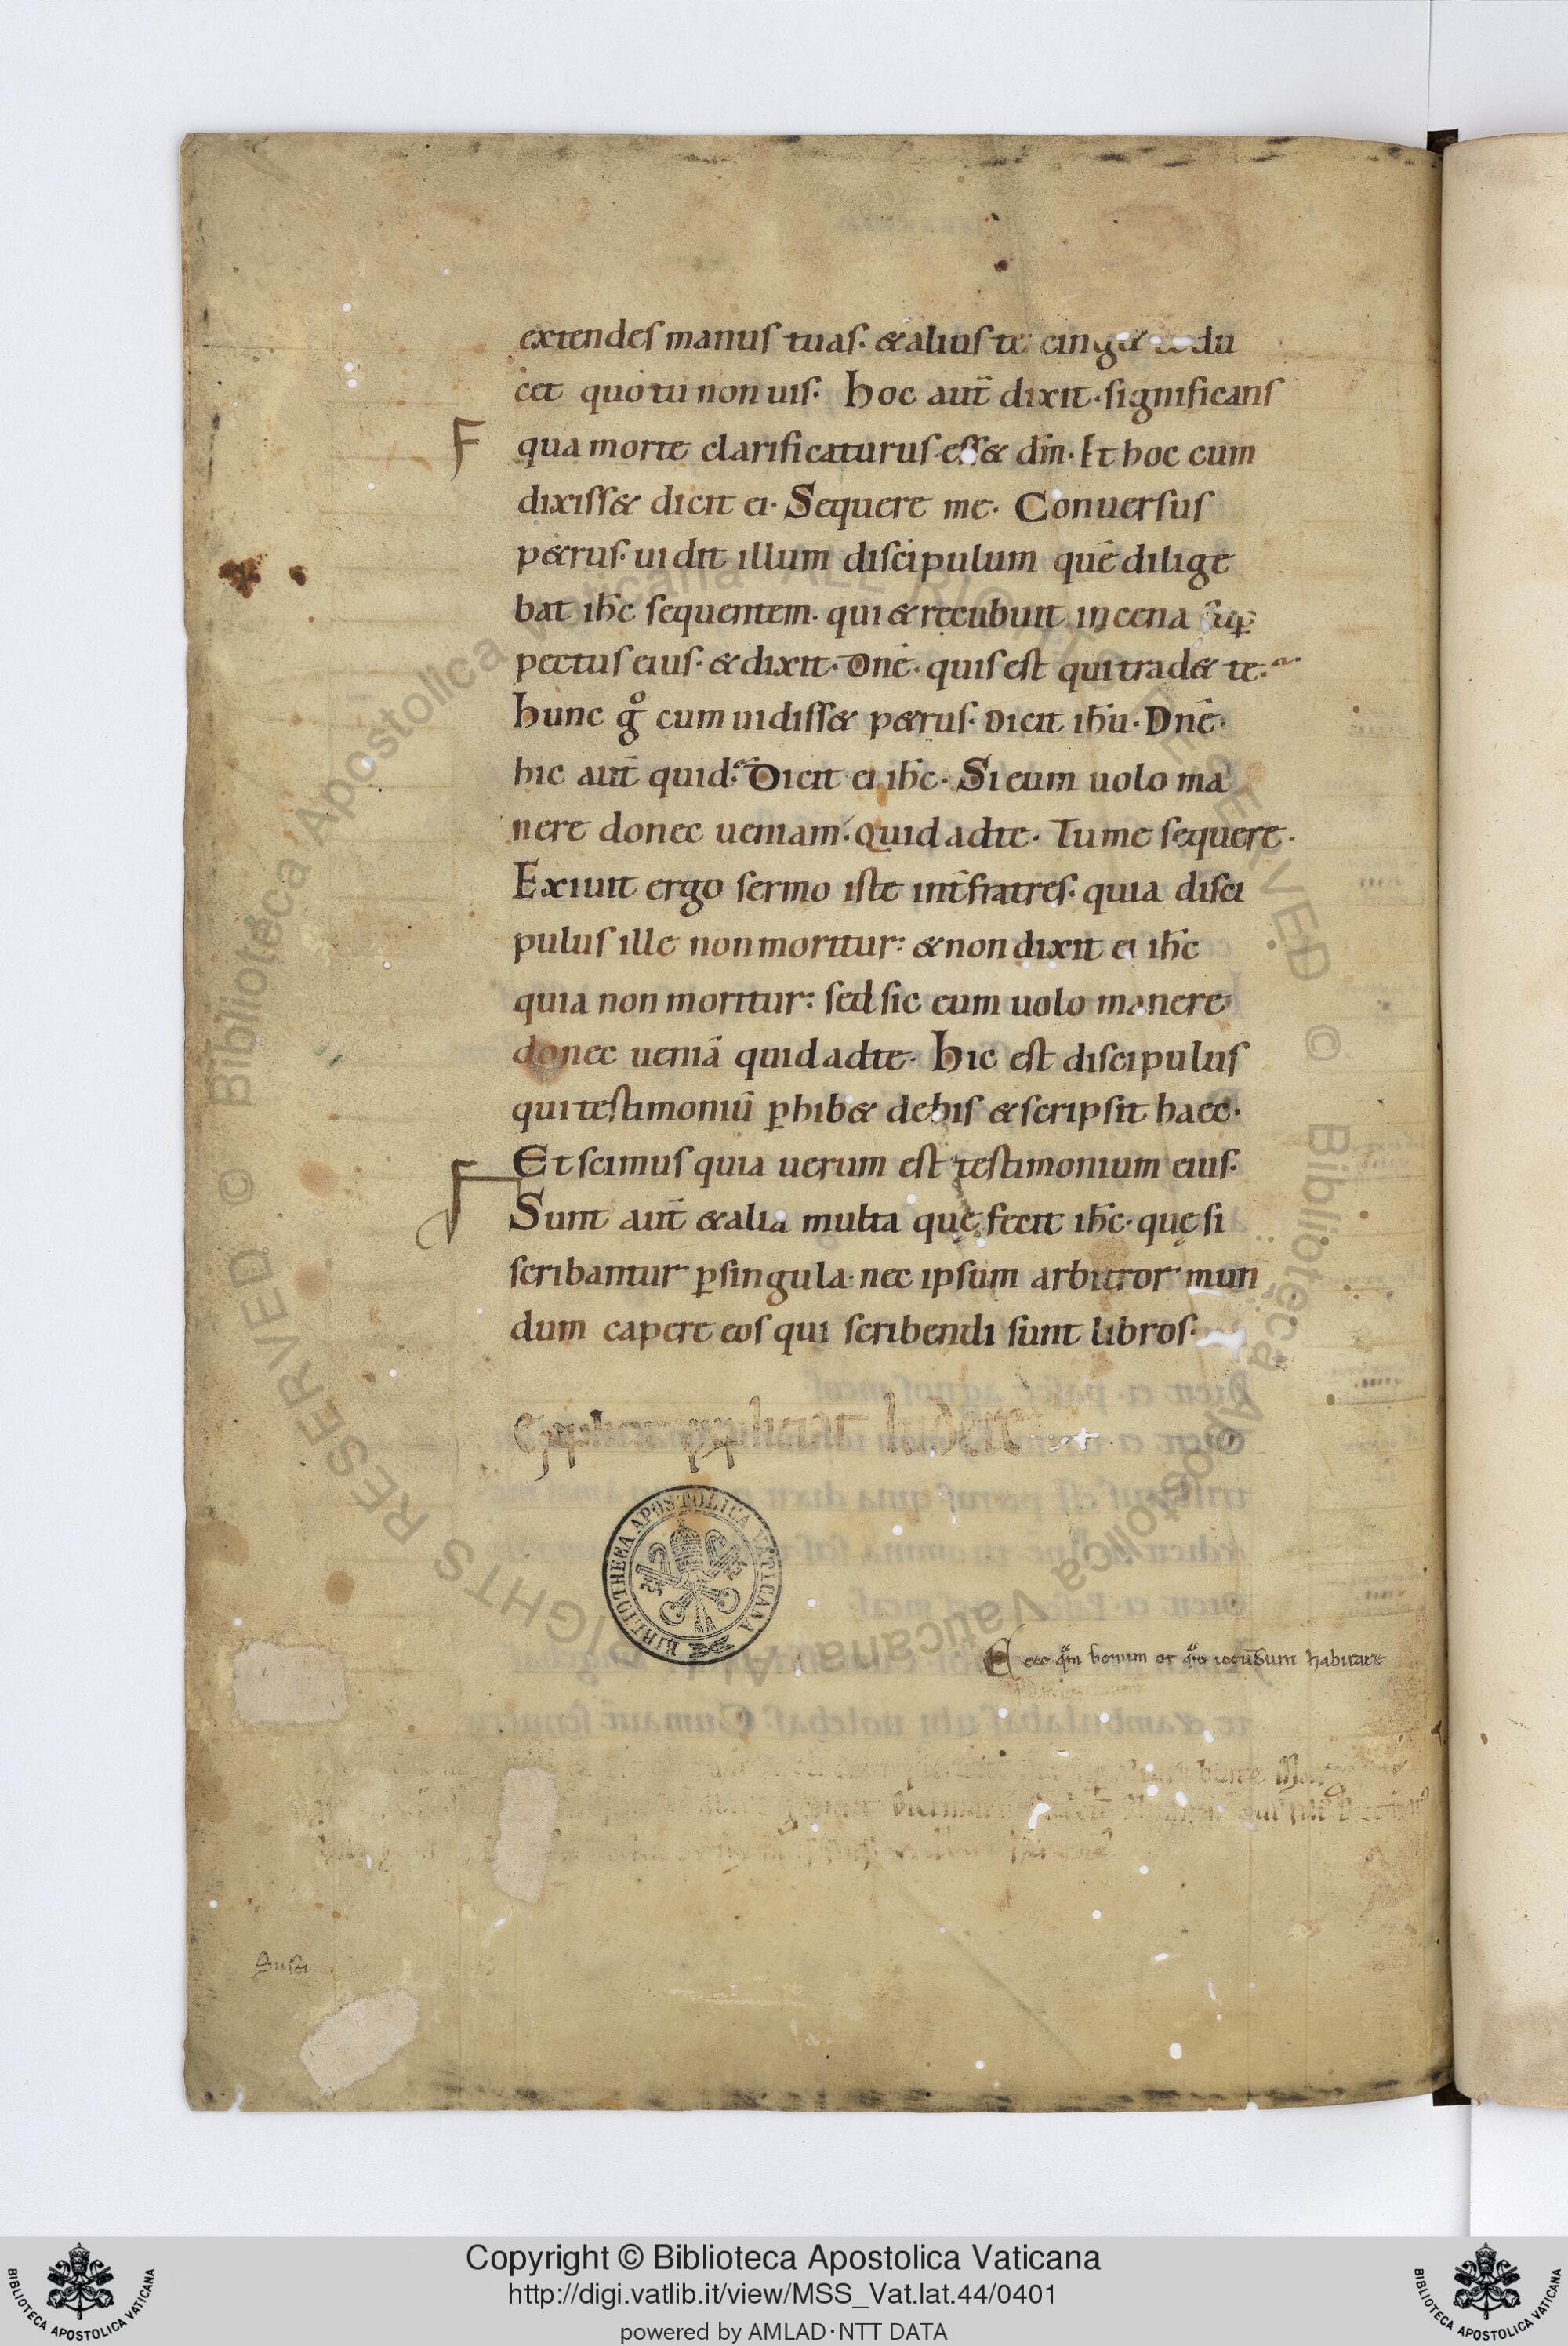 extendes manus tuas. & alius te cing& & du
cet quo tu non uis. hoc aut̄ dixit. significans
F
qua morte clarificaturus ess& dm̄. Et hoc cum
dixiss& dicit ei. Sequere me. Conuersus
p&rus. uidit illum discipulum quē dilige
bat ih̄c sequentem. qui & recubuit in cena sup̄
pectus eius. & dixit. Dnē. quis est qui trad& te.
hunc g̊ cum uidiss& p&rus. Dicit ih̄u. Dnē.
hic aut̄ quid. Dicit ei ih̄c. Si eum uolo ma
nere donec ueniam. Quid ad te. Tu me sequere.
Exiuit ergo sermo iste int̄ fratres. quia disci
pulus ille non moritur: & non dixit ei ih̄c
quia non moritur: sed sic eum uolo manere
donec ueniā quid ad te. hic est discipulus
qui testimoniū ꝑhib& de his & scripsit haec.
Et scimus quia uerum est testimonium eius.
Sunt aut̄ & alia multa quę fecit ih̄c. quę si
scribantur ꝑ singula. nec ipsum arbitror mun
dum capere eos qui scribendi sunt libros.
explicat explicat ludere
BIBLIOTHECA APOSTOLICA VATICANA
Ecce qm̄ bonum et qm̄ iocūdum habitare
© Biblioteca Apostolica Vaticana ALL RIGHTS RESERVED © Biblioteca Apostolica Vaticana ALL RIGHTS RESERVED
Copyright © Biblioteca Apostolica Vaticana
http://digi.vatlib.it/view/MSS_Vat.lat.44/0401
powered by AMLAD·NTT DATA
BIBLIOTECA APOSTOLICA VATICANA
BIBLIOTECA APOSTOLICA VATICANA